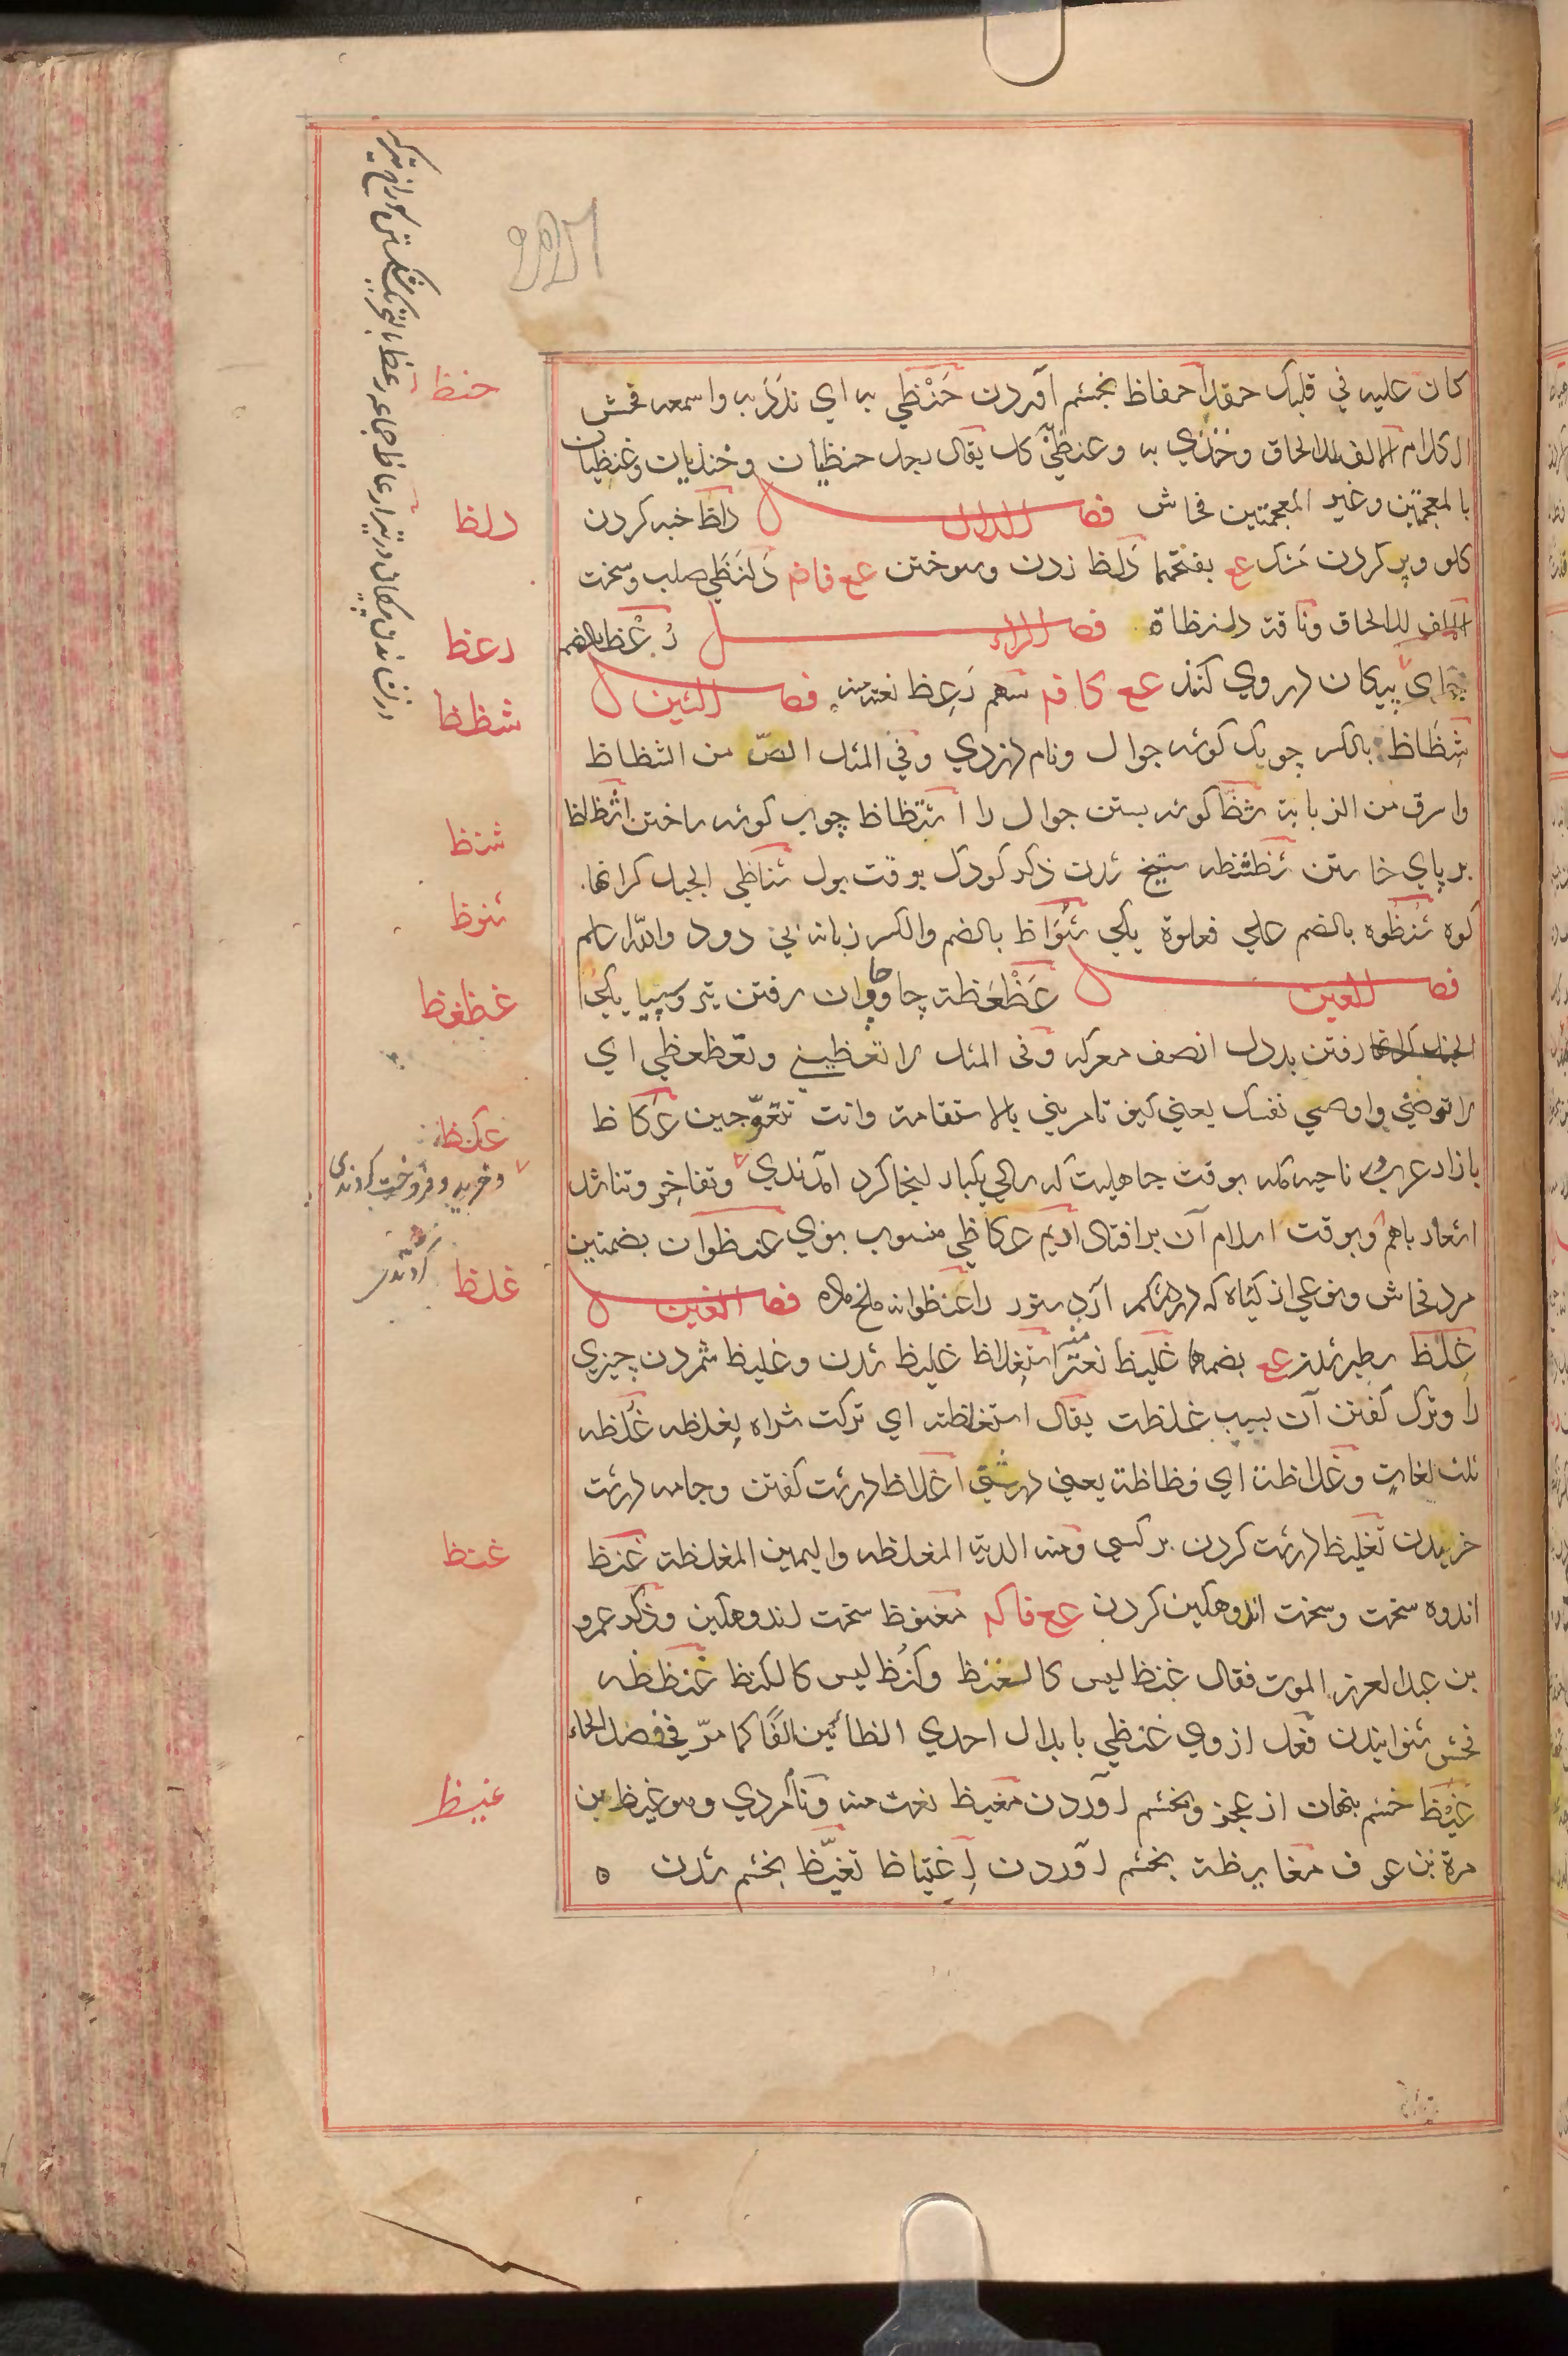 كان عليه في قلبك حقدا احفاظ بخشم آوردن حَنْظي به اي ندّد به واسمعه فحش
الكلام الالف للالحاق وخنذي به وعنظي كل يقال رجل حنظيان وخنذيان وعنظيان
بالمعجمتين وغير المعجمتين فحاش فصل الدال دلظ خبه كردن
كلو وپر كردن مشك عع بفتحهما دَلظ زدن وسوختن عع فاضم دَلَنظَي صلب وسخت
الالف للالحاق وناقة دلنظاة فصل الراء رُعْظ بالضم
جاي پيكان در وي كنند عع كافم سهم رَعِظ نعت منه فصل الشين
شِظَاظ بالكسر چوبك كوشه جوال ونام دزدي وفي المثل الصّ من الشظاظ
واسرق من الزبابة شظّ كوشه بستن جوال را اشظاظ چوب كوشه ساختن اشظاظ
بر پاي خاستن شظشظه سيخ شدن ذكر كودك بوقت بول شناظي الجبل كرانها
كوه شُنظُوه بالضم علي فعلوة يكي شُوَاظ بالضم والكسر زبانه بي دود والله اعلم
فصل العين عَظْعَظة چاوان رفتن تير وسپيا يكي
رفتن بددل از صف معركه وفى المثل لا تعظيني وتعظعظي اي
لا توصيني واوصي نفسك يعني كيف تامريني بالاستقامة وانت تتعوّجين عكاظ
بازار عرب ناحيه مكه بوقت جاهليت كه سالي يكبار انجا كرد آمدندي وتفاخر وتناشد
اشعار باهم وبوقت اسلام آن بر افتاد اديم عكاظي منسوب بوي عنظوان بضمتين
مرد فحاش ونوعي از كياه كه درد شكم آرد ستور را عنظوانه ملخ ماده فصل الغين
غلظ سطبر شدن عع بضمها غليظ نعت منه استغلاظ غليظ شدن وغليظ شمردن چيزي
را وترك كفتن آن بسبب غلظت يقال استغلظته اي تركت شراه لغلظه غلظه
ثلث لغات وغلاظة اي فظاظة يعني درشتي اغلاظ درشت كفتن وجامه درشت
خريدن تغليظ درشت كردن بر كسي ومنه الدية المغلظه واليمين المغلظة غَنظ
اندوه سخت وسخت اندوهكين كردن عع فاكم مغنوظ سخت اندوهكين وذكر عمرو
بن عبد العزيز الموت فقال غنظ ليس كالغنظ وكنظ ليس كالكنظ غنظظه
فحش شنوانيدن فعل از وي غنظي بابدال احدي الظائين الفا كما مرّ في فصل الحاء
غَيْظ خشم پنهان از عجز وبخشم آوردن مغيظ نعت منه ونامردي وهو غيظ بن
مرة بن عوف مغايظة بخشم آوردن اغتياظ تغيّظ بخشم شدن ٥
حنظ
دلظ
رعظ
شظظ
شنظ
شوظ
عظعظ
عكظ
وخريد وفروخت كردندي
غلظ
غنظ
غيظ